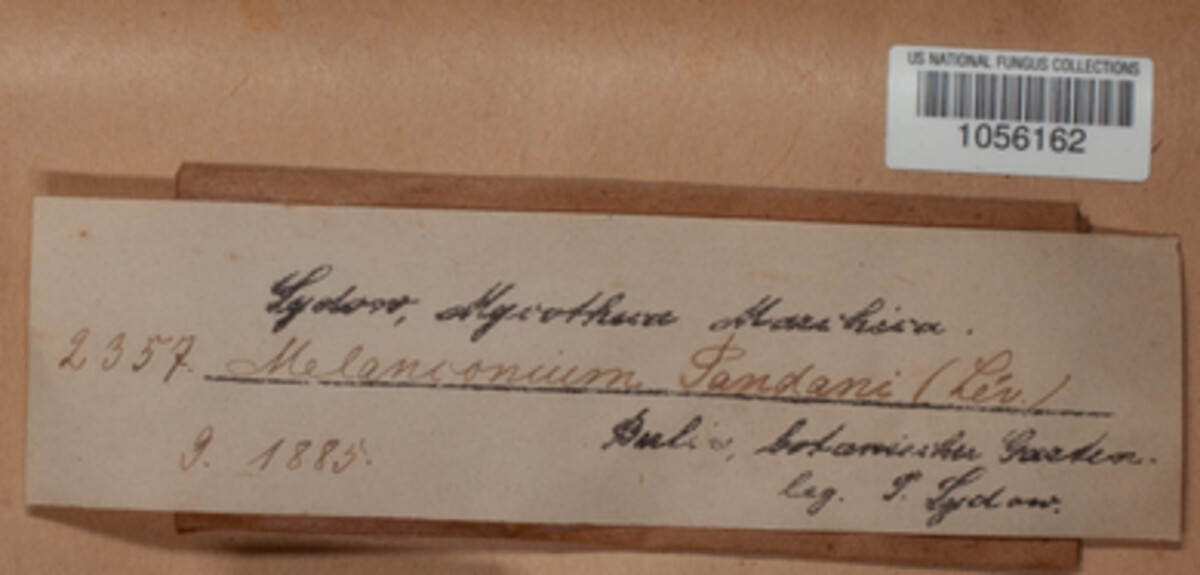 US NATIONAL FUNGUS COLLECTIONS
1056162
Sydow, Mycotheca Marchica.
2357. Melanconium Pandani (Lév.)
9. 1885. Berlin, botanischer Garten.
leg. P. Sydow.